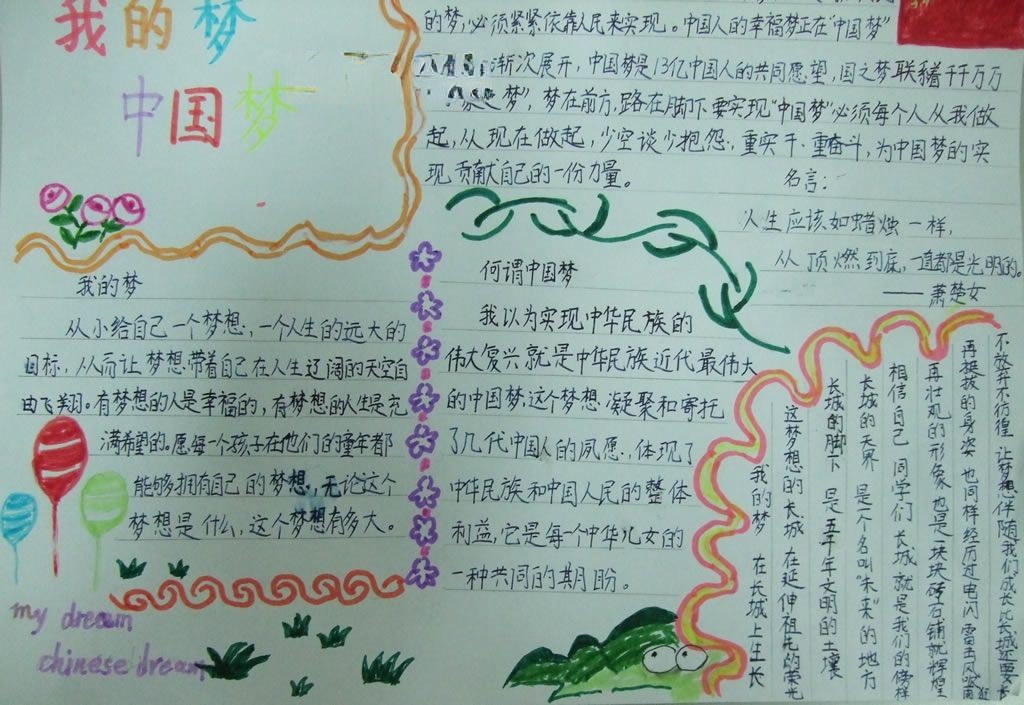 我的梦
中国梦
的梦,必须紧紧依靠人民来实现。中国人的幸福梦正在“中国梦”
渐次展开,中国梦是13亿中国人的共同愿望,国之梦联繫着千千万万
梦”,梦在前方,路在脚下,要实现“中国梦”必须每个人从我做
起,从现在做起,少空谈少抱怨,重实干、重奋斗,为中国梦的实
现贡献自己的一份力量。
名言:
人生应该如蜡烛一样,
从顶燃到底,一直都是光明的。
——萧楚女
我的梦
从小给自己一个梦想,一个人生的远大的
目标,从而让梦想带着自己在人生辽阔的天空自
由飞翔。有梦想的人是幸福的,有梦想的人生是充
满希望的。愿每一个孩子在他们的童年都
能够拥有自己的梦想,无论这个
梦想是什么,这个梦想有多大。
my dream
chinese dream
何谓中国梦
我以为实现中华民族的
伟大复兴就是中华民族近代最伟大
的中国梦,这个梦想凝聚和寄托
了几代中国人的夙愿,体现了
中华民族和中国人民的整体
利益,它是每一个中华儿女的
一种共同的期盼。
我的梦 在长城上生长
这梦想的长城 在延伸祖先的荣光
长城的脚下 是五千年文明的土壤
长城的天界 是一个名叫“未来”的地方
相信自己 同学们 长城就是我们的榜样
再壮观的形象 也是一块块砖石铺就辉煌
再挺拔的身姿 也同样经历过电闪雷击风吹雨
不放弃不彷徨 让梦想伴随我们成长 比长城还要长